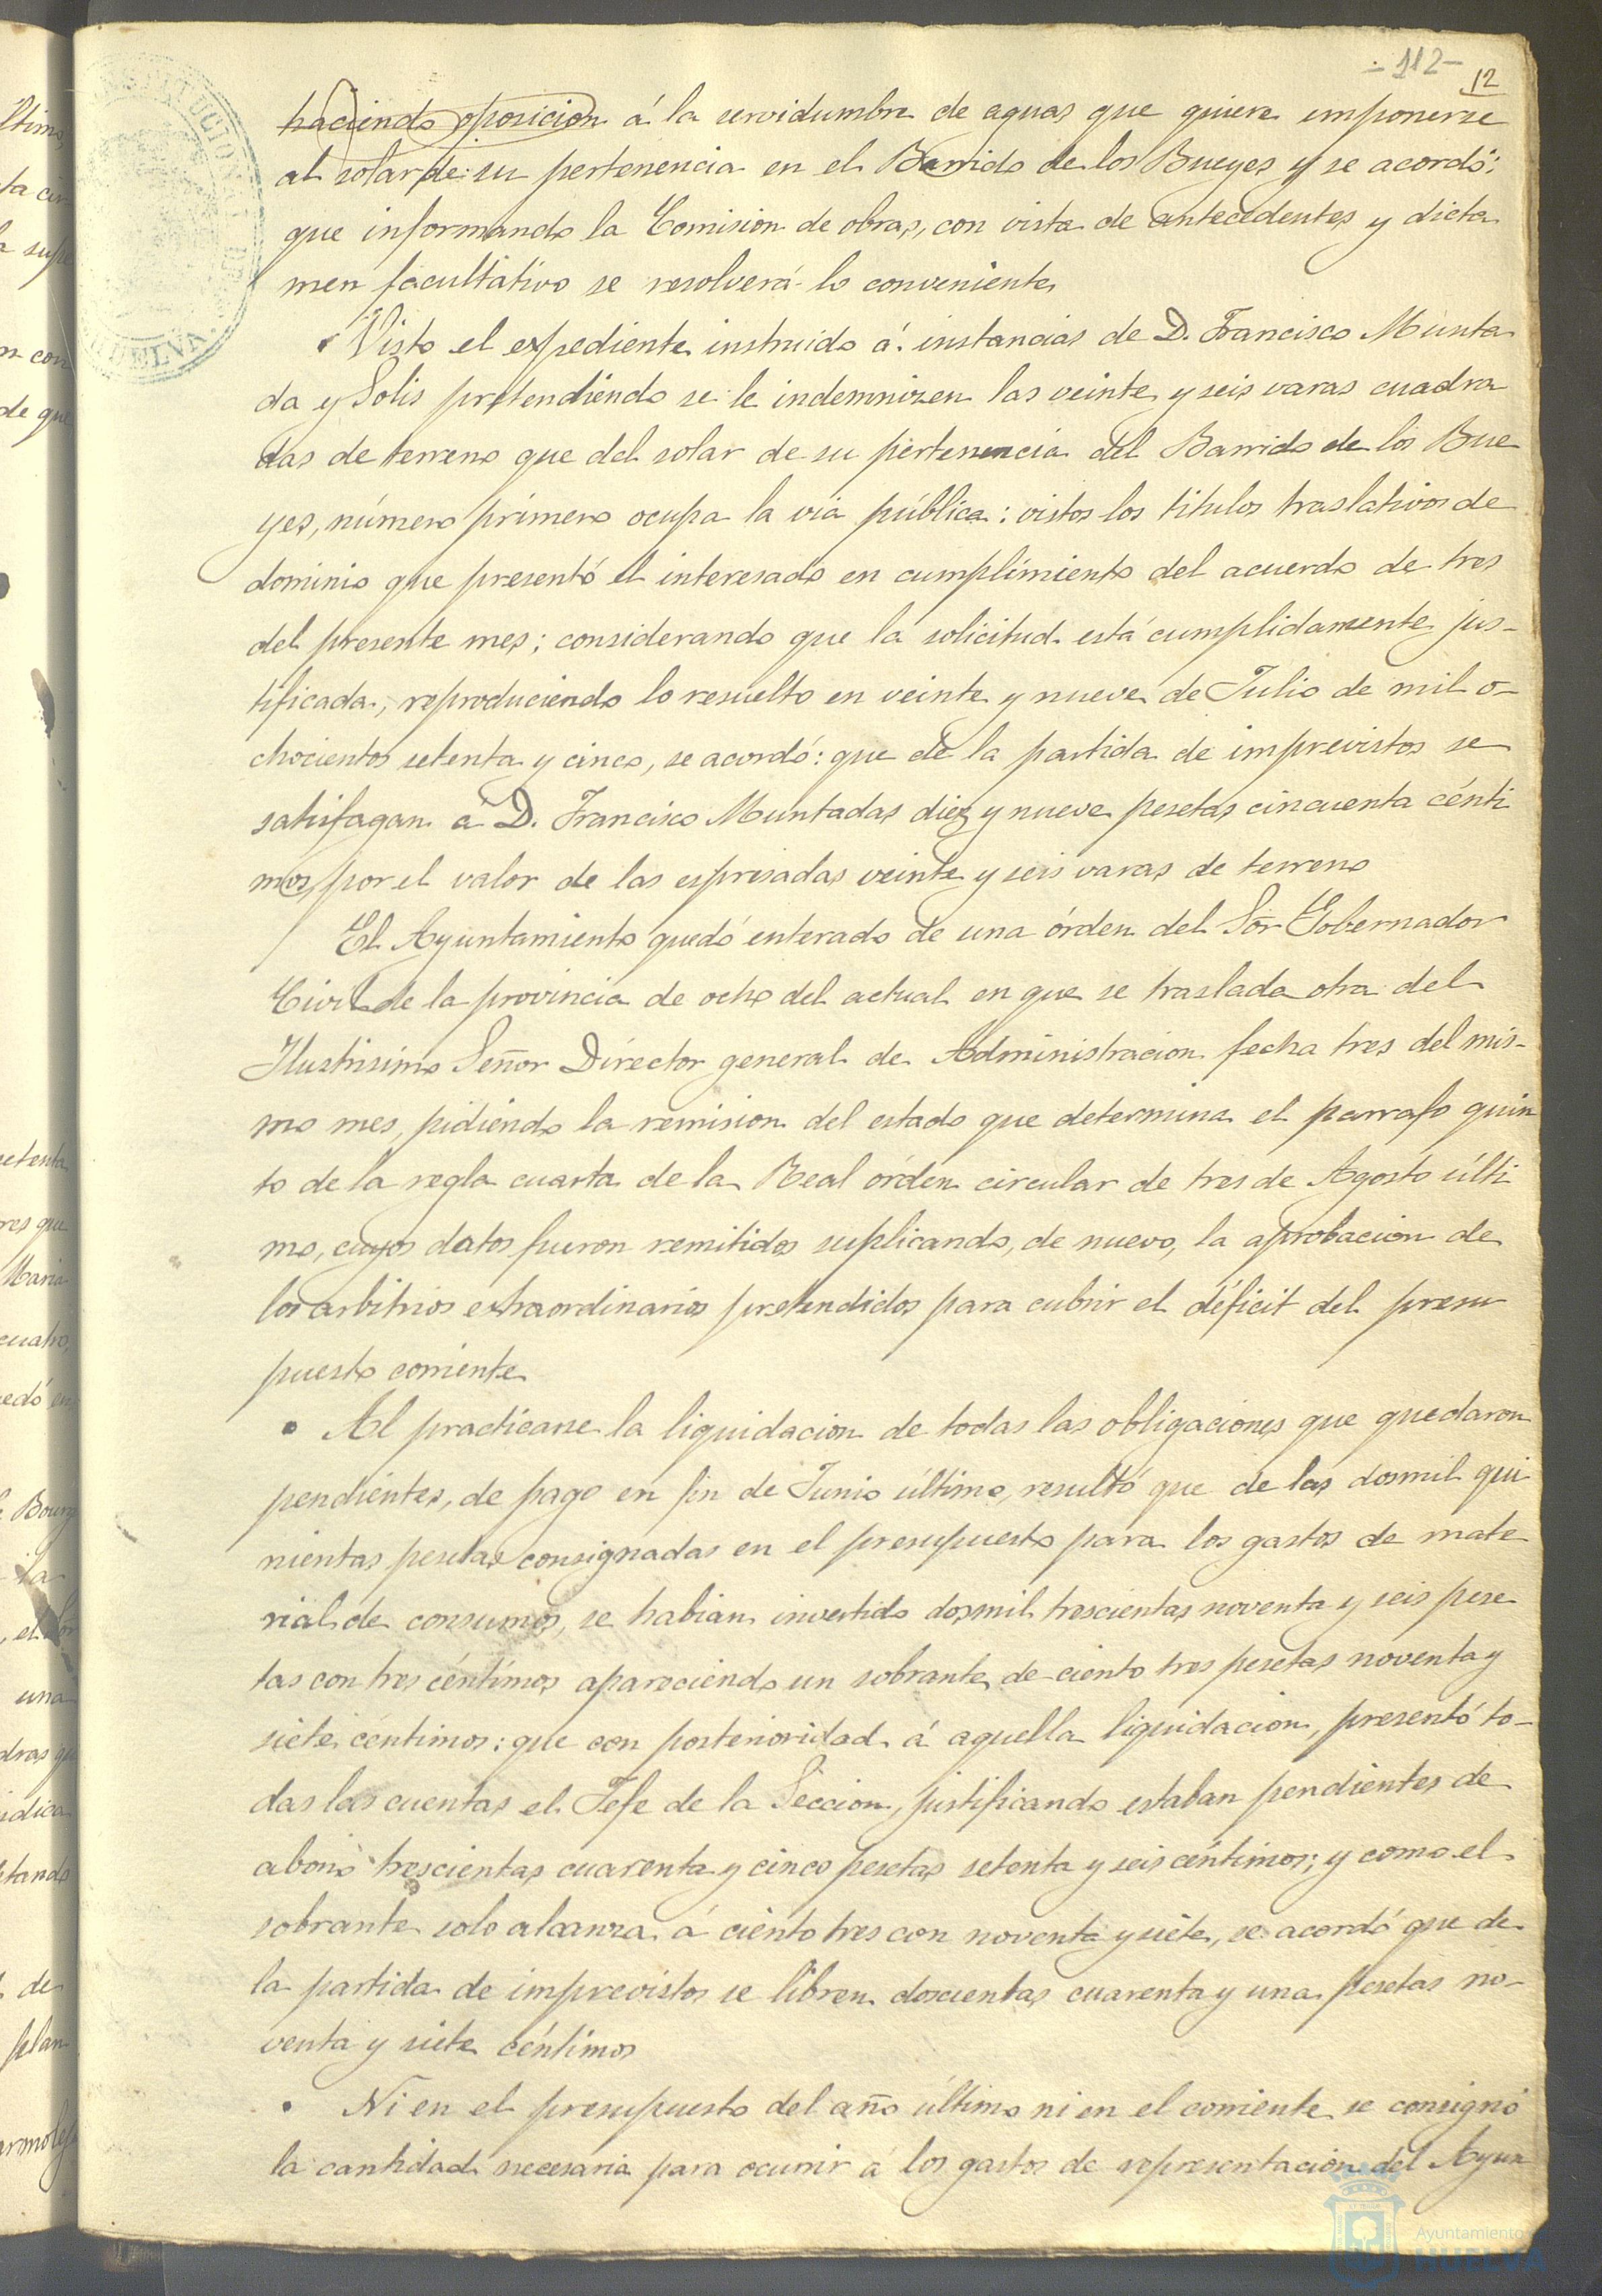 - 112 -
12
haciendo oposicion á la servidumbre de aguas que quiere imponerse
al solar de su pertenencia en el Barrido de los Bueyes y se acordó:
que informando la Comision de obras, con vista de antecedentes y dicta
men facultativo se resolverá lo conveniente
Visto el expediente instruido á instancias de D. Francisco Munta
da y Solis pretendiendo se le indemnizen las veinte y seis varas cuadra
das de terreno que del solar de su pertenencia del Barrido de los Bue
yes, número primero ocupa la via pública: vistos los titulos traslativos de
dominio que presentó el interesado en cumplimiento del acuerdo de tres
del presente mes; considerando que la solicitud está cumplidamente jus-
tificada, reproduciendo lo resuelto en veinte y nueve de Julio de mil o-
chocientos setenta y cinco, se acordó: que de la partida de imprevistos se
satisfagan á D. Francisco Muntadas diez y nueve pesetas cincuenta cénti
mos por el valor de las espresadas veinte y seis varas de terreno
El Ayuntamiento quedó enterado de una órden del Sor Gobernador
Civil de la provincia de ocho del actual en que se traslada otra del
Ilustrisimo Señor Director general de Administracion fecha tres del mis-
mo mes, pidiendo la remision del estado que determina el parrafo quin
to de la regla cuarta de la Real órden circular de tres de Agosto últi
mo, cuyos datos fueron remitidos suplicando, de nuevo, la aprobacion de
los arbitrios extraordinarios pretendidos para cubrir el déficit del presu
puesto corriente
Al practicarse la liquidacion de todas las obligaciones que quedaron
pendientes, de pago en fin de Junio último, resultó que de las dosmil qui
nientas pesetas consignadas en el presupuesto para los gastos de mate-
rial de consumos, se habian invertido dosmil trescientas noventa y seis pese
tas con tres céntimos apareciendo un sobrante de ciento tres pesetas noventa y
siete céntimos: que con posterioridad á aquella liquidacion, presentó to-
das las cuentas el Jefe de la Seccion, justificando estaban pendientes de
abono trescientas cuarenta y cinco pesetas setenta y seis céntimos; y como el
sobrante solo alcanza á ciento tres con noventa y siete, se acordó que de
la partida de imprevistos se libren doscientas cuarenta y una pesetas no-
venta y siete céntimos
Ni en el presupuesto del año último ni en el corriente se consignó
la cantidad necesaria para ocurrir á los gastos de representacion del Ayun
Ayuntamiento
HUELVA